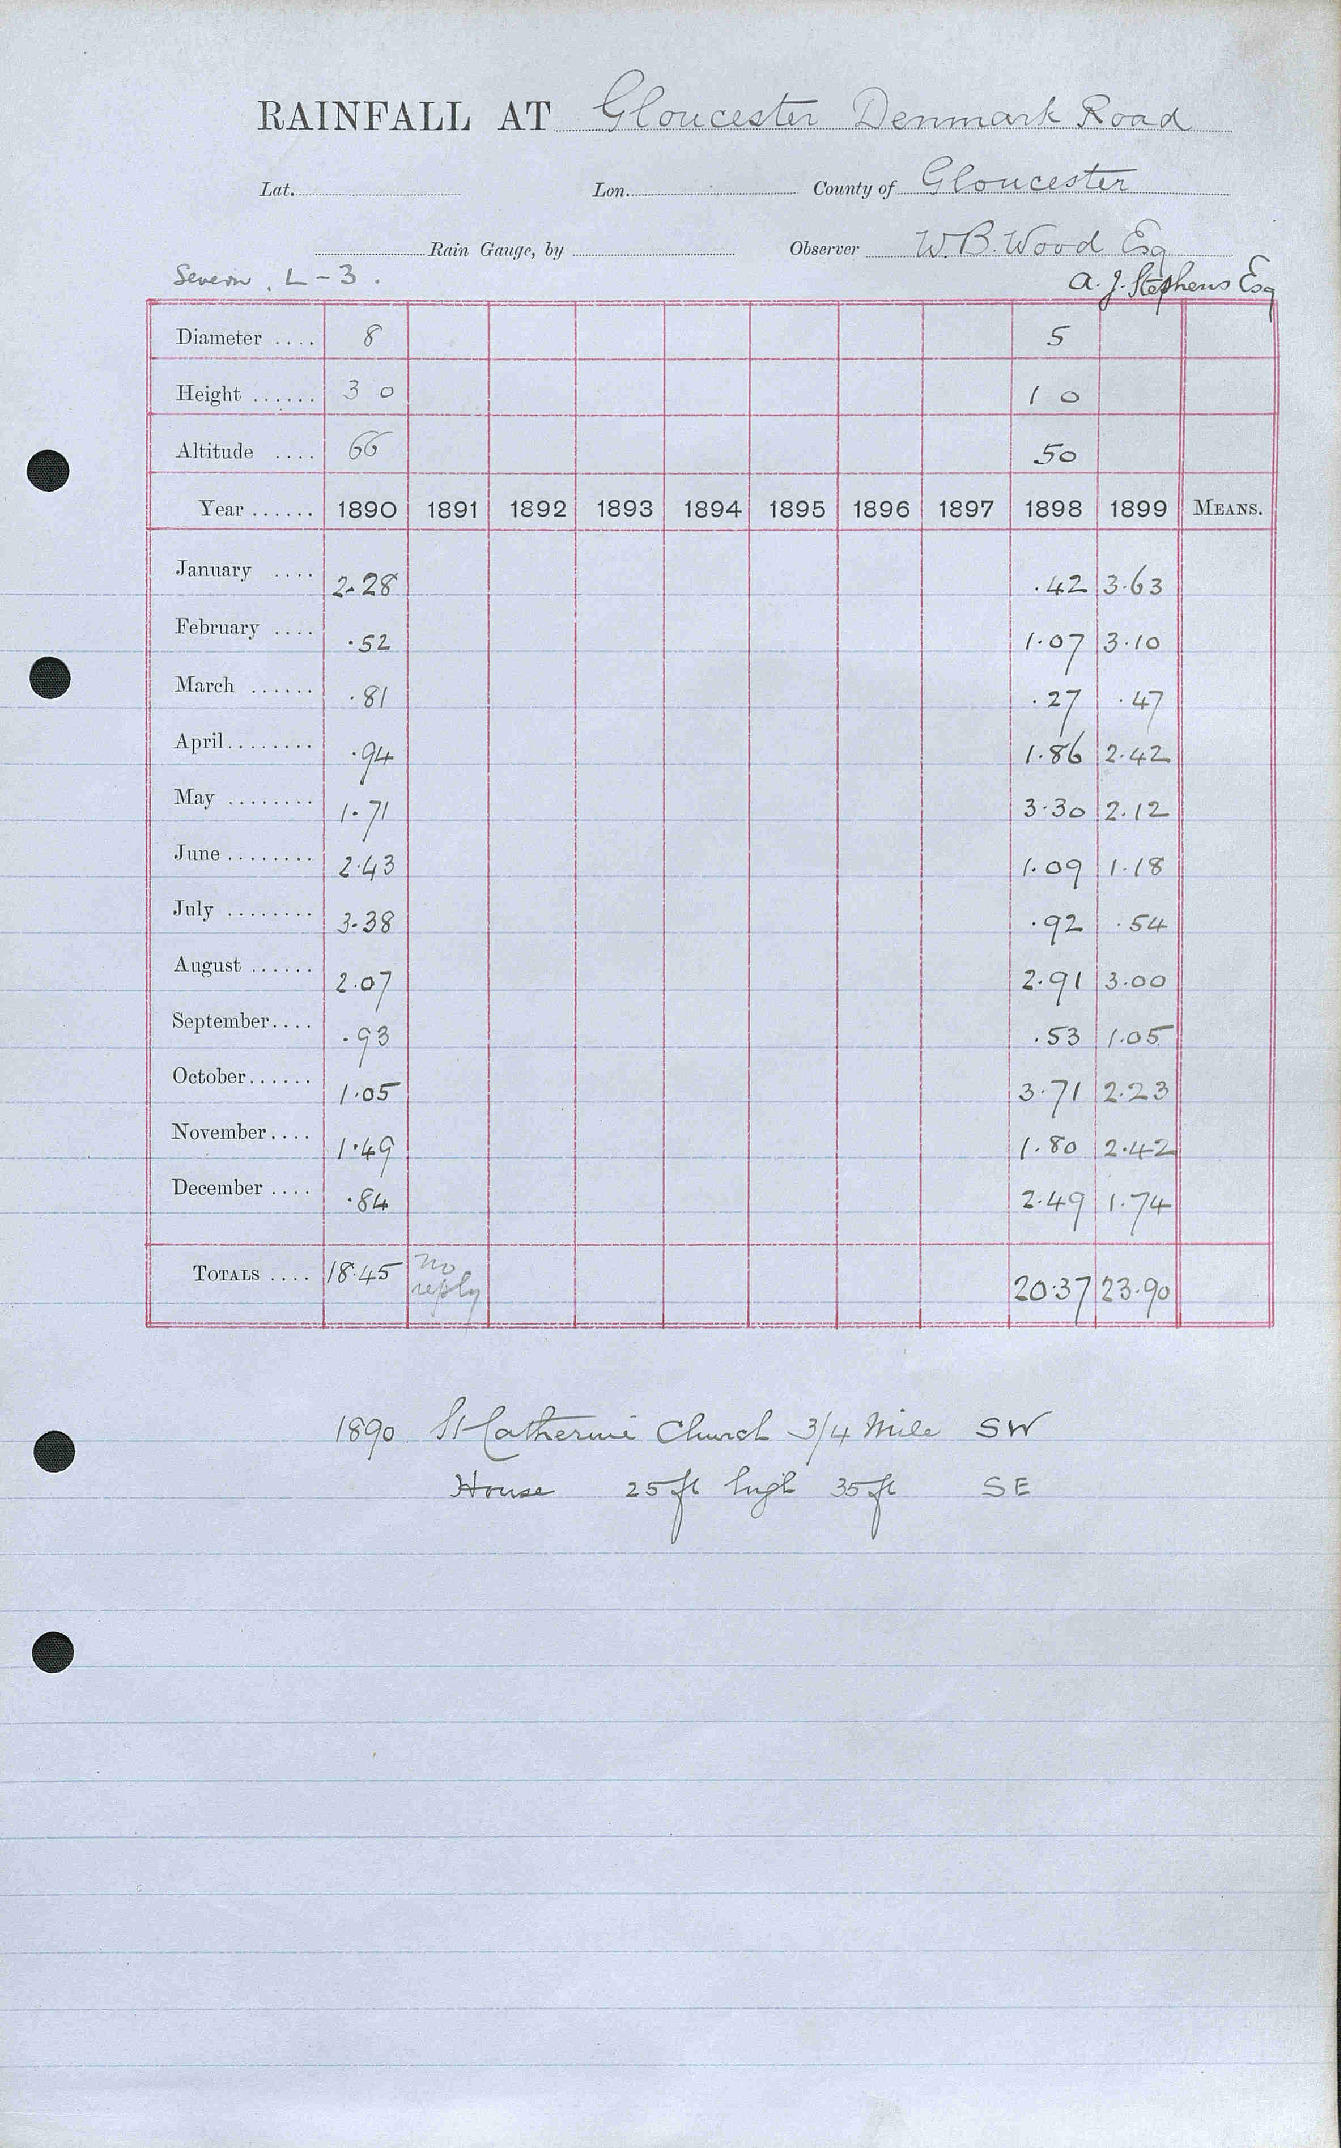 RAINFALL AT Gloucester Denmark Road
Lat. Lon. County of Gloucester
Rain Gauge, by Observer W. B. Wood Esq
Severn. L - 3. A. J. Stephens Esq
Diameter .... 8 5
Height ...... 3 0 1 0
Altitude .... 66 50
Year ...... 1890 1891 1892 1893 1894 1895 1896 1897 1898 1899 MEANS.
January .... 2.28 .42 3.63
February .... .52 1.07 3.10
March ...... .81 .27 .47
April........ .94 1.86 2.42
May ........ 1.71 3.30 2.12
June ........ 2.43 1.09 1.18
July ........ 3.38 .92 .54
August ...... 2.07 2.91 3.00
September.... .93 .53 1.05
October...... 1.05 3.71 2.23
November.... 1.49 1.80 2.42
December .... .84 2.49 1.74
TOTALS .... 18.45 no reply 20.37 23.90
1890 St Catherine Church 3/4 Mile SW
House 25 ft high 35 ft SE